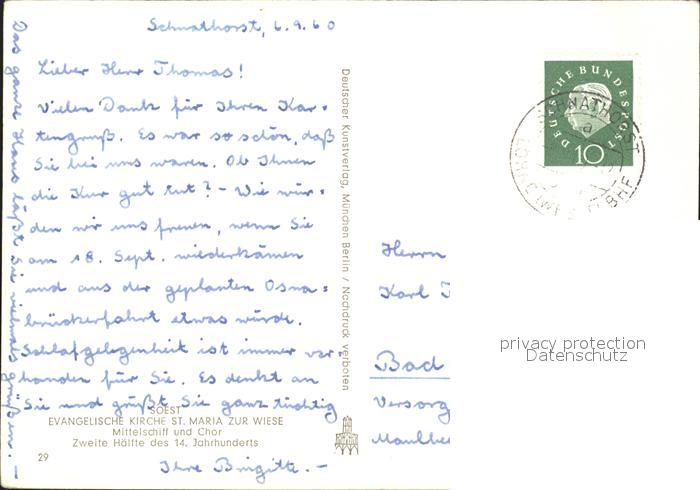 Schnathorst, 6.9.60
Lieber Herr Thomas!
Vielen Dank für Ihren Kar=
tengruß. Es war so schön, daß
Sie bei uns waren. Ob Ihnen
die Kur gut tut? - Wie wür=
den wir uns freuen, wenn Sie
am 18. Sept. wiederkämen
und aus der geplanten Osna=
brückerfahrt etwas würde.
Schlafgelegenheit ist immer vor=
handen für Sie. Es denkt an
Sie und grüßt Sie ganz tüchtig
Ihre Brigitte. -
Das ganze Haus läßt Sie vielmals grüßen. -
SOEST
EVANGELISCHE KIRCHE ST. MARIA ZUR WIESE
Mittelschiff und Chor
Zweite Hälfte des 14. Jahrhunderts
29
Deutscher Kunstverlag, München Berlin / Nachdruck verboten
DEUTSCHE BUNDESPOST
10
SCHNATHORST
a
Herrn
Karl T
Bad
Versorg
Maulbe
privacy protection
Datenschutz